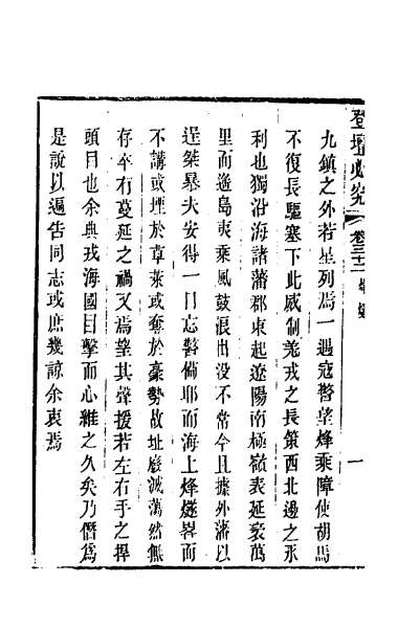 登壇必究 卷三十二 烽燧 一
九鎮之外若星列焉一遇寇警望烽乘障使胡馬
不復長驅塞下此威制羗戎之長策西北邊之永
利也獨沿海諸藩郡東起遼陽南極嶺表延袤萬
里而遙島夷乘風鼓浪出没不常今且據外藩以
逞桀暴夫安得一日忘警俻耶而海上烽燧畧而
不講或堙於草萊或奪於豪勢故址廢滅蕩然無
存卒有蔓延之禍又焉望其聲援若左右手之捍
頭目也余典戎海國目擊而心維之久矣乃僭爲
是說以遍告同志或庶幾諒余衷焉